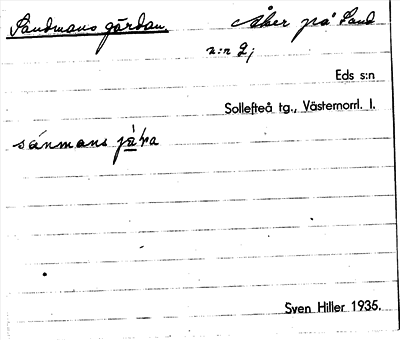 Sandmans gärdan Åker på Sand
n:n 2;
Eds s:n
Sollefteå tg., Västernorrl. l.
sánmans
Sven Hiller 1935.